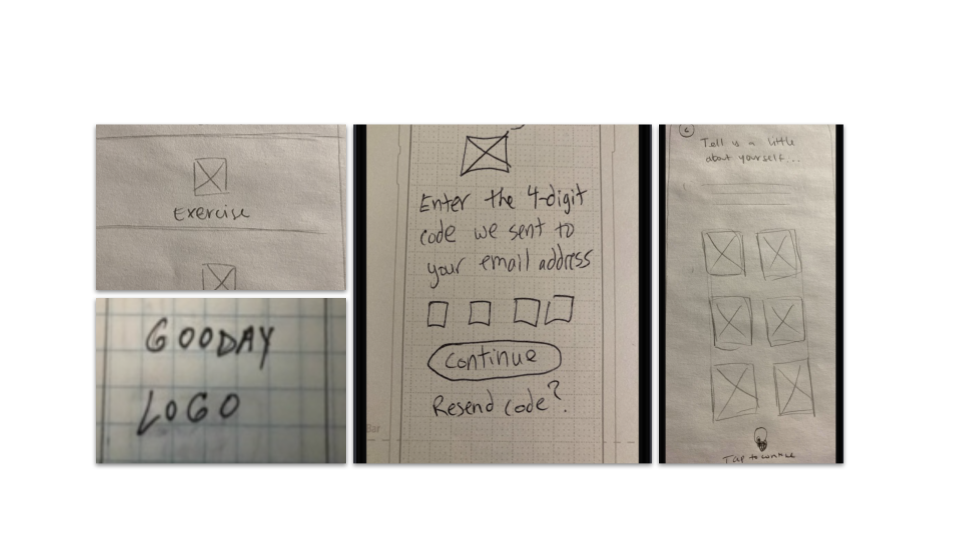 Exercise
GOODAY
LOGO
Enter the 4-digit
code we sent to
your email address
Continue
Resend code?
Tell us a little
about yourself...
Tap to continue